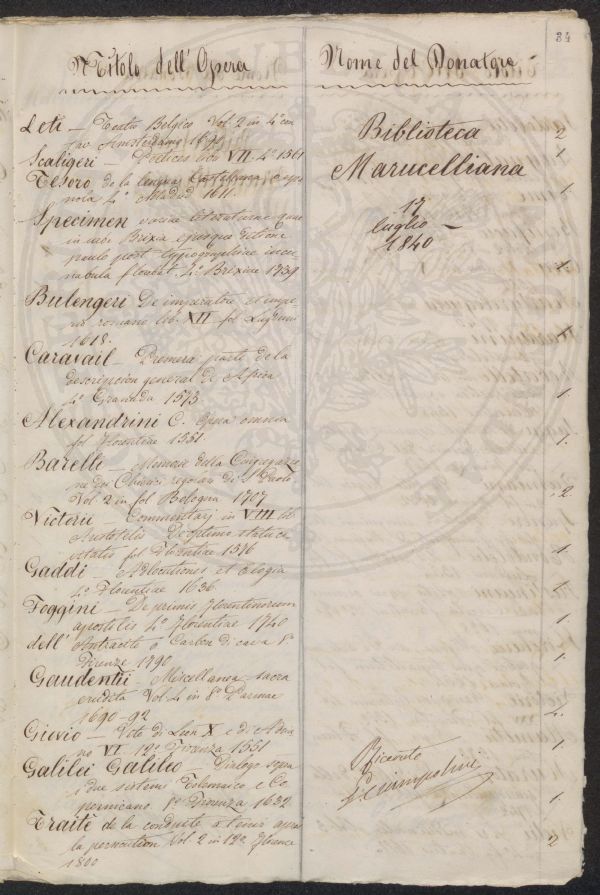 84
Titolo dell' Opera
Nome del Donatore
Leti – Teatro Belgico Vol. 2 in 4° con
Amsterdamo 1690
Scaligeri – Poetices libri VII. 4° 1561
Tesoro de la lengua Castellana o espa-
nola 4° Madrid 1611.
Specimen variae literaturae quae
in urbe Brixia ejusque ditione
paulo post typographiae incu-
nabula florebat 4° Brixiae 1739
Bulengeri De imperatore et impe-
rio romano lib. XII fol Lugduni
1618.
Caravail – Primera parte de la
descripcion general de Africa
4° Granada 1573
Alexandrini C. Opera omnia
fol Florentiae 1551.
Barelli – Memorie della Congregazio-
ne dei Chierici regolari di S. Paolo
Vol 2 in fol Bologna 1707
Victorii – Commentarj in VIII lib
Aristotelis De optimo statu ci-
vitatis fol Florentiae 1576
Gaddi – Adlocutiones et elogia
4° Florentiae 1636.
Foggini – De primis Florentinorum
apostolis 4° Florentiae 1740
dell' Antracite o Carbon di cava 8°
Firenze 1790
Gaudentii – Miscellanea sacra
erudita Vol 4 in 8° Parmae
1690-92
Giovio – Vite di Leon X e di Adria-
no VI 12° Firenza 1551
Galilei Galileo – Dialogo sopra
i due sistemi Tolemaico e Co-
pernicano Firenza 1632.
Traité de la conduite a tenir après
la persecution Vol. 2 in 12° Florence
1800
Biblioteca
Marucelliana
17
luglio
1840
Ricevuto
Ciampolini
2
1
1
1
1
1.
1.
2
1
1
1.
1.
4.
1
1
2